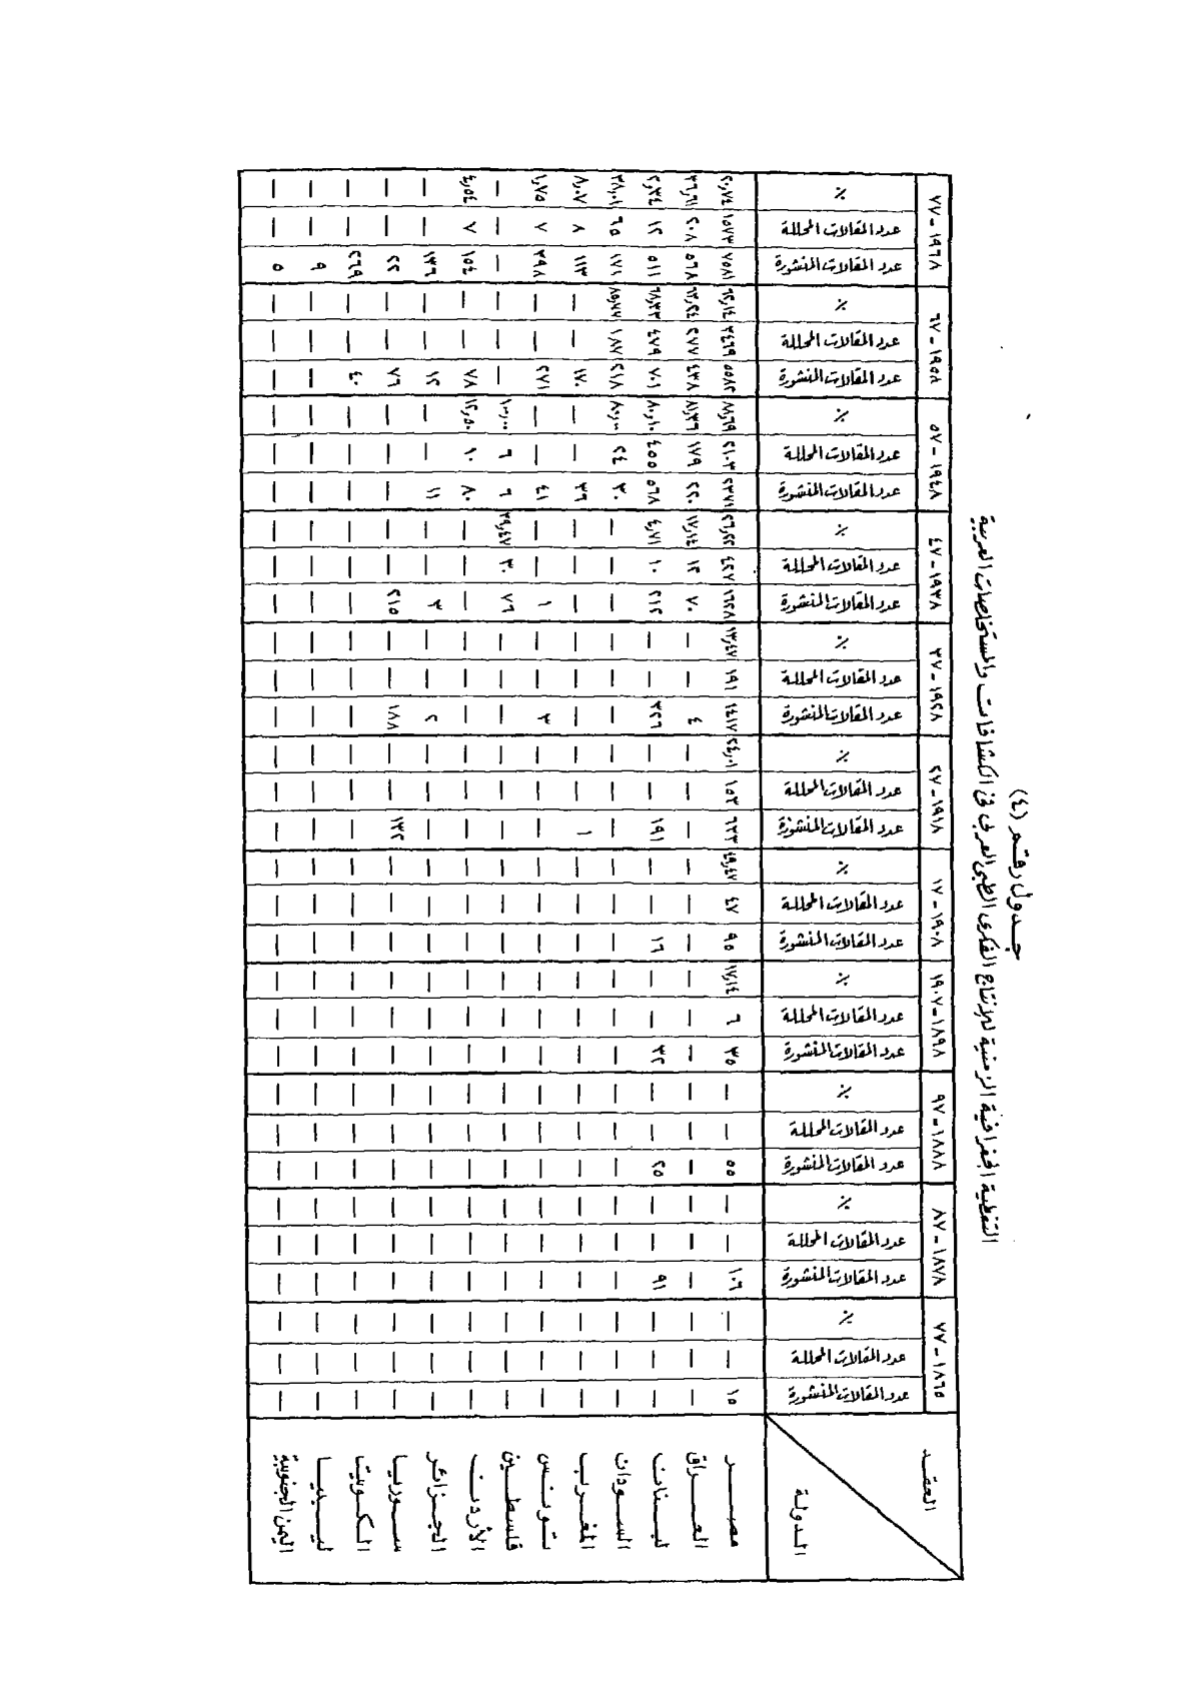 جدول رقم (٤)
التغطية الجغرافية الزمنية للإنتاج الفكرى الطبى العربى فى الكشافات والمستخلصات العربية
العقد ١٨٦٥-٧٧ ١٨٧٨-٨٧ ١٨٨٨-٩٧ ١٨٩٨-١٩٠٧ ١٩٠٨-١٧ ١٩١٨-٢٧ ١٩٢٨-٣٧ ١٩٣٨-٤٧ ١٩٤٨-٥٧ ١٩٥٨-٦٧ ١٩٦٨-٧٧
الدولة عدد المقالات المنشورة عدد المقالات المحللة % عدد المقالات المنشورة عدد المقالات المحللة % عدد المقالات المنشورة عدد المقالات المحللة % عدد المقالات المنشورة عدد المقالات المحللة % عدد المقالات المنشورة عدد المقالات المحللة % عدد المقالات المنشورة عدد المقالات المحللة % عدد المقالات المنشورة عدد المقالات المحللة % عدد المقالات المنشورة عدد المقالات المحللة % عدد المقالات المنشورة عدد المقالات المحللة % عدد المقالات المنشورة عدد المقالات المحللة % عدد المقالات المنشورة عدد المقالات المحللة %
مصر ١٥ — — ١٠٦ — — ٥٥ — — ٣٥ ٦ ١٧,١٤ ٩٥ ٤٧ ٤٩,٤٧ ١٥٣ ٢٤,٠١ ١٤١٧ ١٩١ ١٣,٤٧ ١٦٢٨ ٤٢٧ ٢٦,٢٢ ٢٣٧١ ٢١٠٣ ٨٨,٦٩ ٥٥٨٢ ٣٤٦٩ ٦٢,١٤ ٧٥٨١ ١٥٧٣ ٢٠,٧٤
العراق — — — — — — — — — — — — — — — — — — ٤ — — ٧٠ ١٢ ١٧,١٤ ٢٢٠ ١٧٩ ٨١,٣٦ ٤٣٨ ٢٧٧ ٦٣,٢٤ ٥٦٨ ٢٠٨ ٣٦,٦١
لبنان — — — ٩١ — — ٢٥ — — ٣٢ — — ١٦ — — ١٩١ — — ٣٢٦ — — ٢١٢ ١٠ ٤,٧١ ٥٦٨ ٤٥٥ ٨٠,١٠ ٧٠١ ٤٧٩ ٦٨,٣٣ ٥١١ ١٢ ٢,٣٤
السودان — — — — — — — — — — — — — — — — — — — — — — — — ٣٠ ٢٤ ٨٠,٠٠ ٢١٨ ١٨٧ ٨٥,٧٧ ١٧١ ٦٥ ٣٨,٠١
المغرب — — — — — — — — — — — — — — — ١ — — — — — — — — ٣٦ — — ١٧٠ — — ١١٣ ٨ ٨,٠٧
تونس — — — — — — — — — — — — — — — — — — ٣ — — ١ — — ٤١ — — ٢٧١ — — ٣٩٨ ٧ ١,٧٥
فلسطين — — — — — — — — — — — — — — — — — — — — — ٧٦ ٣٠ ٣٩,٤٧ ٦ ٦ ١٠٠,٠٠ — — — — — —
الأردن — — — — — — — — — — — — — — — — — — — — — — — — ٨٠ ١٠ ١٢,٥٠ ٧٨ — — ١٥٤ ٧ ٤,٥٤
الجزائر — — — — — — — — — — — — — — — — — — ٢ — — ٣ — — ١١ — — ١٢ — — ١٣٦ — —
سوريا — — — — — — — — — — — — — — — ١٣٢ — — ١٨٨ — — ٢١٥ — — — — — ٧٦ — — ٢٢ — —
الكويت — — — — — — — — — — — — — — — — — — — — — — — — — — — ٤٠ — — ٢٦٩ — —
ليبيا — — — — — — — — — — — — — — — — — — — — — — — — — — — — — — ٩ — —
اليمن الجنوبية — — — — — — — — — — — — — — — — — — — — — — — — — — — — — — ٥ — —